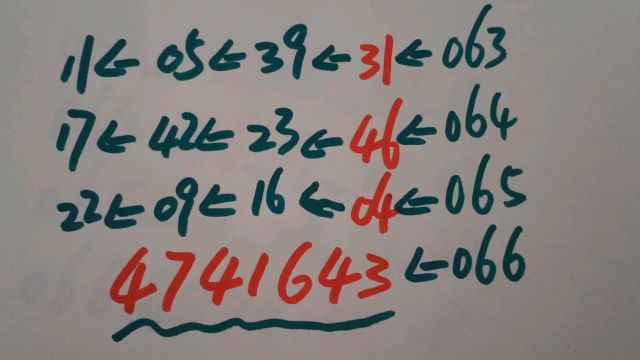 11←05←39←31←063
17←42←23←46←064
22←09←16←04←065
4741643←066